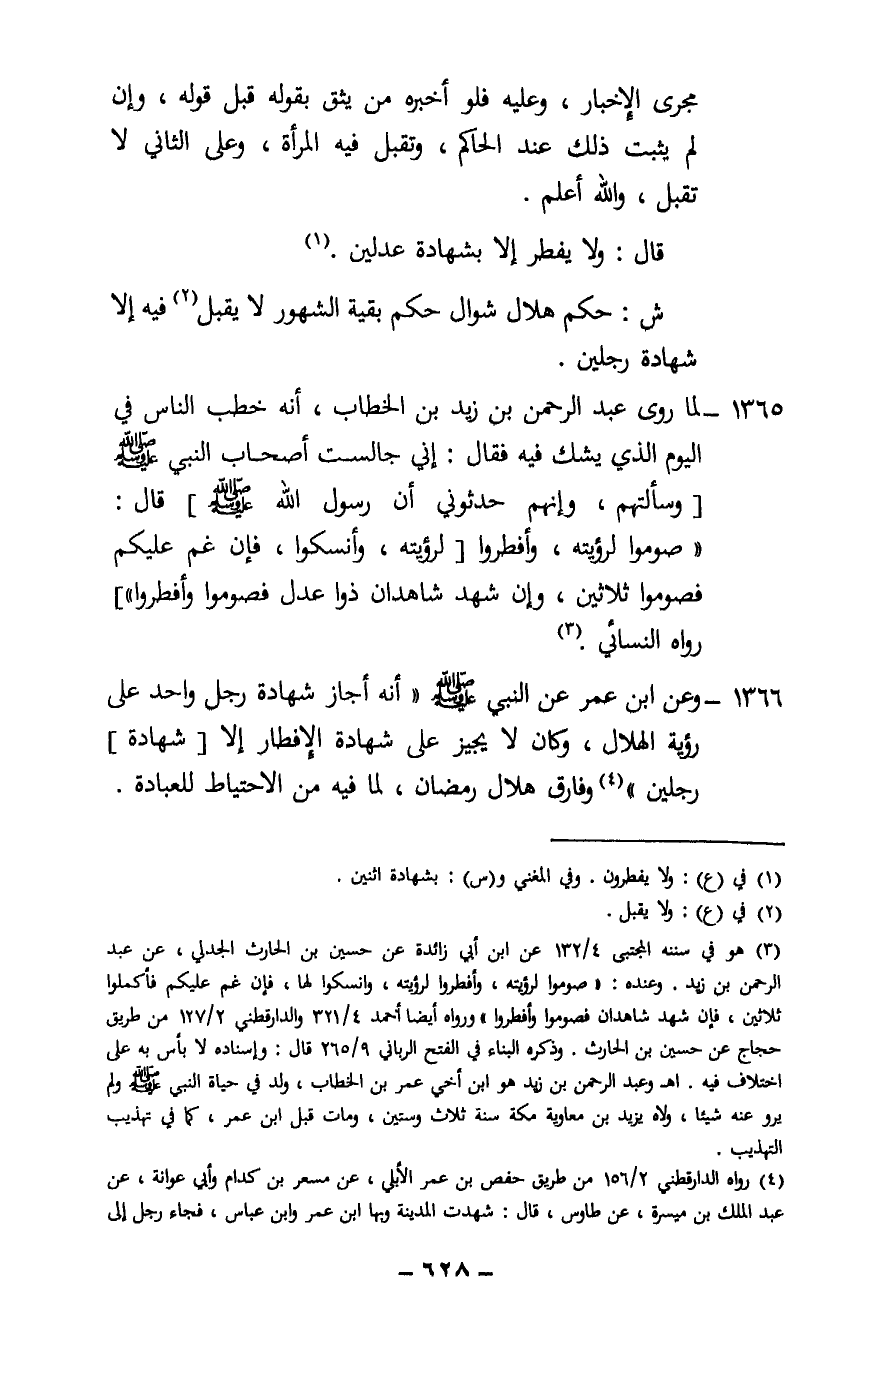 مجرى الإخبار ، وعليه فلو أخبره من يثق بقوله قبل قوله ، وإن
لم يثبت ذلك عند الحاكم ، وتقبل فيه المرأة ، وعلى الثاني لا
تقبل ، والله أعلم .
قال : ولا يفطر إلا بشهادة عدلين .(١)
ش : حكم هلال شوال حكم بقية الشهور لا يقبل(٢) فيه إلا
شهادة رجلين .
١٣٦٥ – لما روى عبد الرحمن بن زيد بن الخطاب ، أنه خطب الناس في
اليوم الذي يشك فيه فقال : إني جالست أصحاب النبي ﷺ
[ وسألتهم ، وإنهم حدثوني أن رسول الله ﷺ ] قال :
« صوموا لرؤيته ، وأفطروا [ لرؤيته ، وأنسكوا ، فإن غم عليكم
فصوموا ثلاثين ، وإن شهد شاهدان ذوا عدل فصوموا وأفطروا»]
رواه النسائي .(٣)
١٣٦٦ – وعن ابن عمر عن النبي ﷺ « أنه أجاز شهادة رجل واحد على
رؤية الهلال ، وكان لا يجيز على شهادة الإفطار إلا [ شهادة ]
رجلين »(٤) وفارق هلال رمضان ، لما فيه من الاحتياط للعبادة .
(١) في (ع) : ولا يفطرون . وفي المغني و(س) : بشهادة اثنين .
(٢) في (ع) : ولا يقبل .
(٣) هو في سننه المجتبى ١٣٢/٤ عن ابن أبي زائدة عن حسين بن الحارث الجدلي ، عن عبد
الرحمن بن زيد . وعنده : « صوموا لرؤيته ، وأفطروا لرؤيته ، وانسكوا لها ، فإن غم عليكم فأكملوا
ثلاثين ، فإن شهد شاهدان فصوموا وأفطروا » ورواه أيضا أحمد ٣٢١/٤ والدارقطني ١٢٧/٢ من طريق
حجاج عن حسين بن الحارث . وذكره البناء في الفتح الرباني ٢٦٥/٩ قال : وإسناده لا بأس به على
اختلاف فيه . اهـ وعبد الرحمن بن زيد هو ابن أخي عمر بن الخطاب ، ولد في حياة النبي ﷺ ولم
يرو عنه شيئا ، ولاه يزيد بن معاوية مكة سنة ثلاث وستين ، ومات قبل ابن عمر ، كما في تهذيب
التهذيب .
(٤) رواه الدارقطني ١٥٦/٢ من طريق حفص بن عمر الأبلي ، عن مسعر بن كدام وأبي عوانة ، عن
عبد الملك بن ميسرة ، عن طاوس ، قال : شهدت المدينة وبها ابن عمر وابن عباس ، فجاء رجل إلى
– ٦٢٨ –